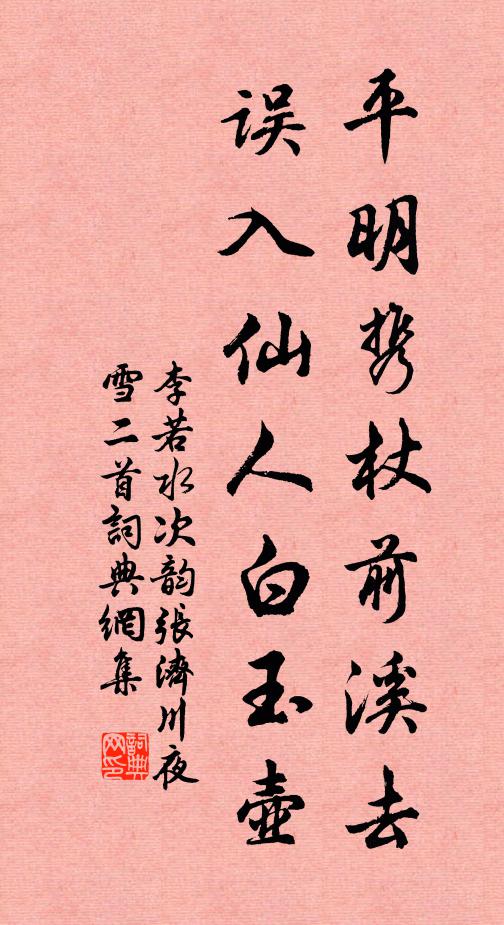 平明携杖前溪去
误入仙人白玉壶
李若水次韵張濟川夜
雪二首詞典網集
詞典
网印